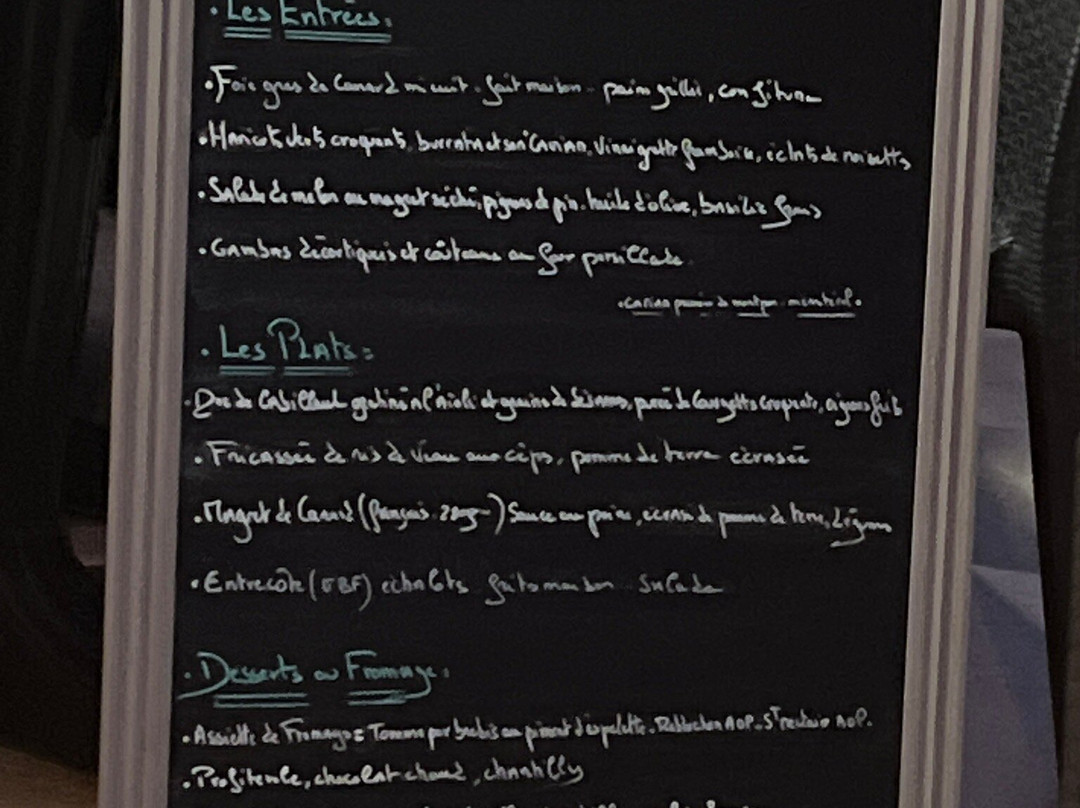 . Les Entrées :
. Foie gras de Canard mi cuit - fait maison - pain grillé, confiture
. Haricots verts croquants, burrata et son Caviar, Vinaigrette framboise, éclats de noisettes
. Salade de melon au magret séché, pignons de pin, huile d'olive, basilic frais
. Gambas décortiquées et couteaux au four persillade
. Les Plats :
. Dos de Cabillaud gratiné à l'Aïoli et graines de Sésames, purée de Courgette croquante, oignons frits
. Fricassée de ris de Veau aux cèps, pomme de terre écrasée
. Magret de Canard (français) Sauce au poivre, écrasé de pomme de terre, Légumes
. Entrecôte (VBF) échalote frites maison Salade
. Desserts ou Fromage :
. Assiette de Fromages : Tomme pur brebis au piment d'espelette. Reblochon AOP. St Nectaire AOP.
. Profiterole, chocolat chaud, chantilly